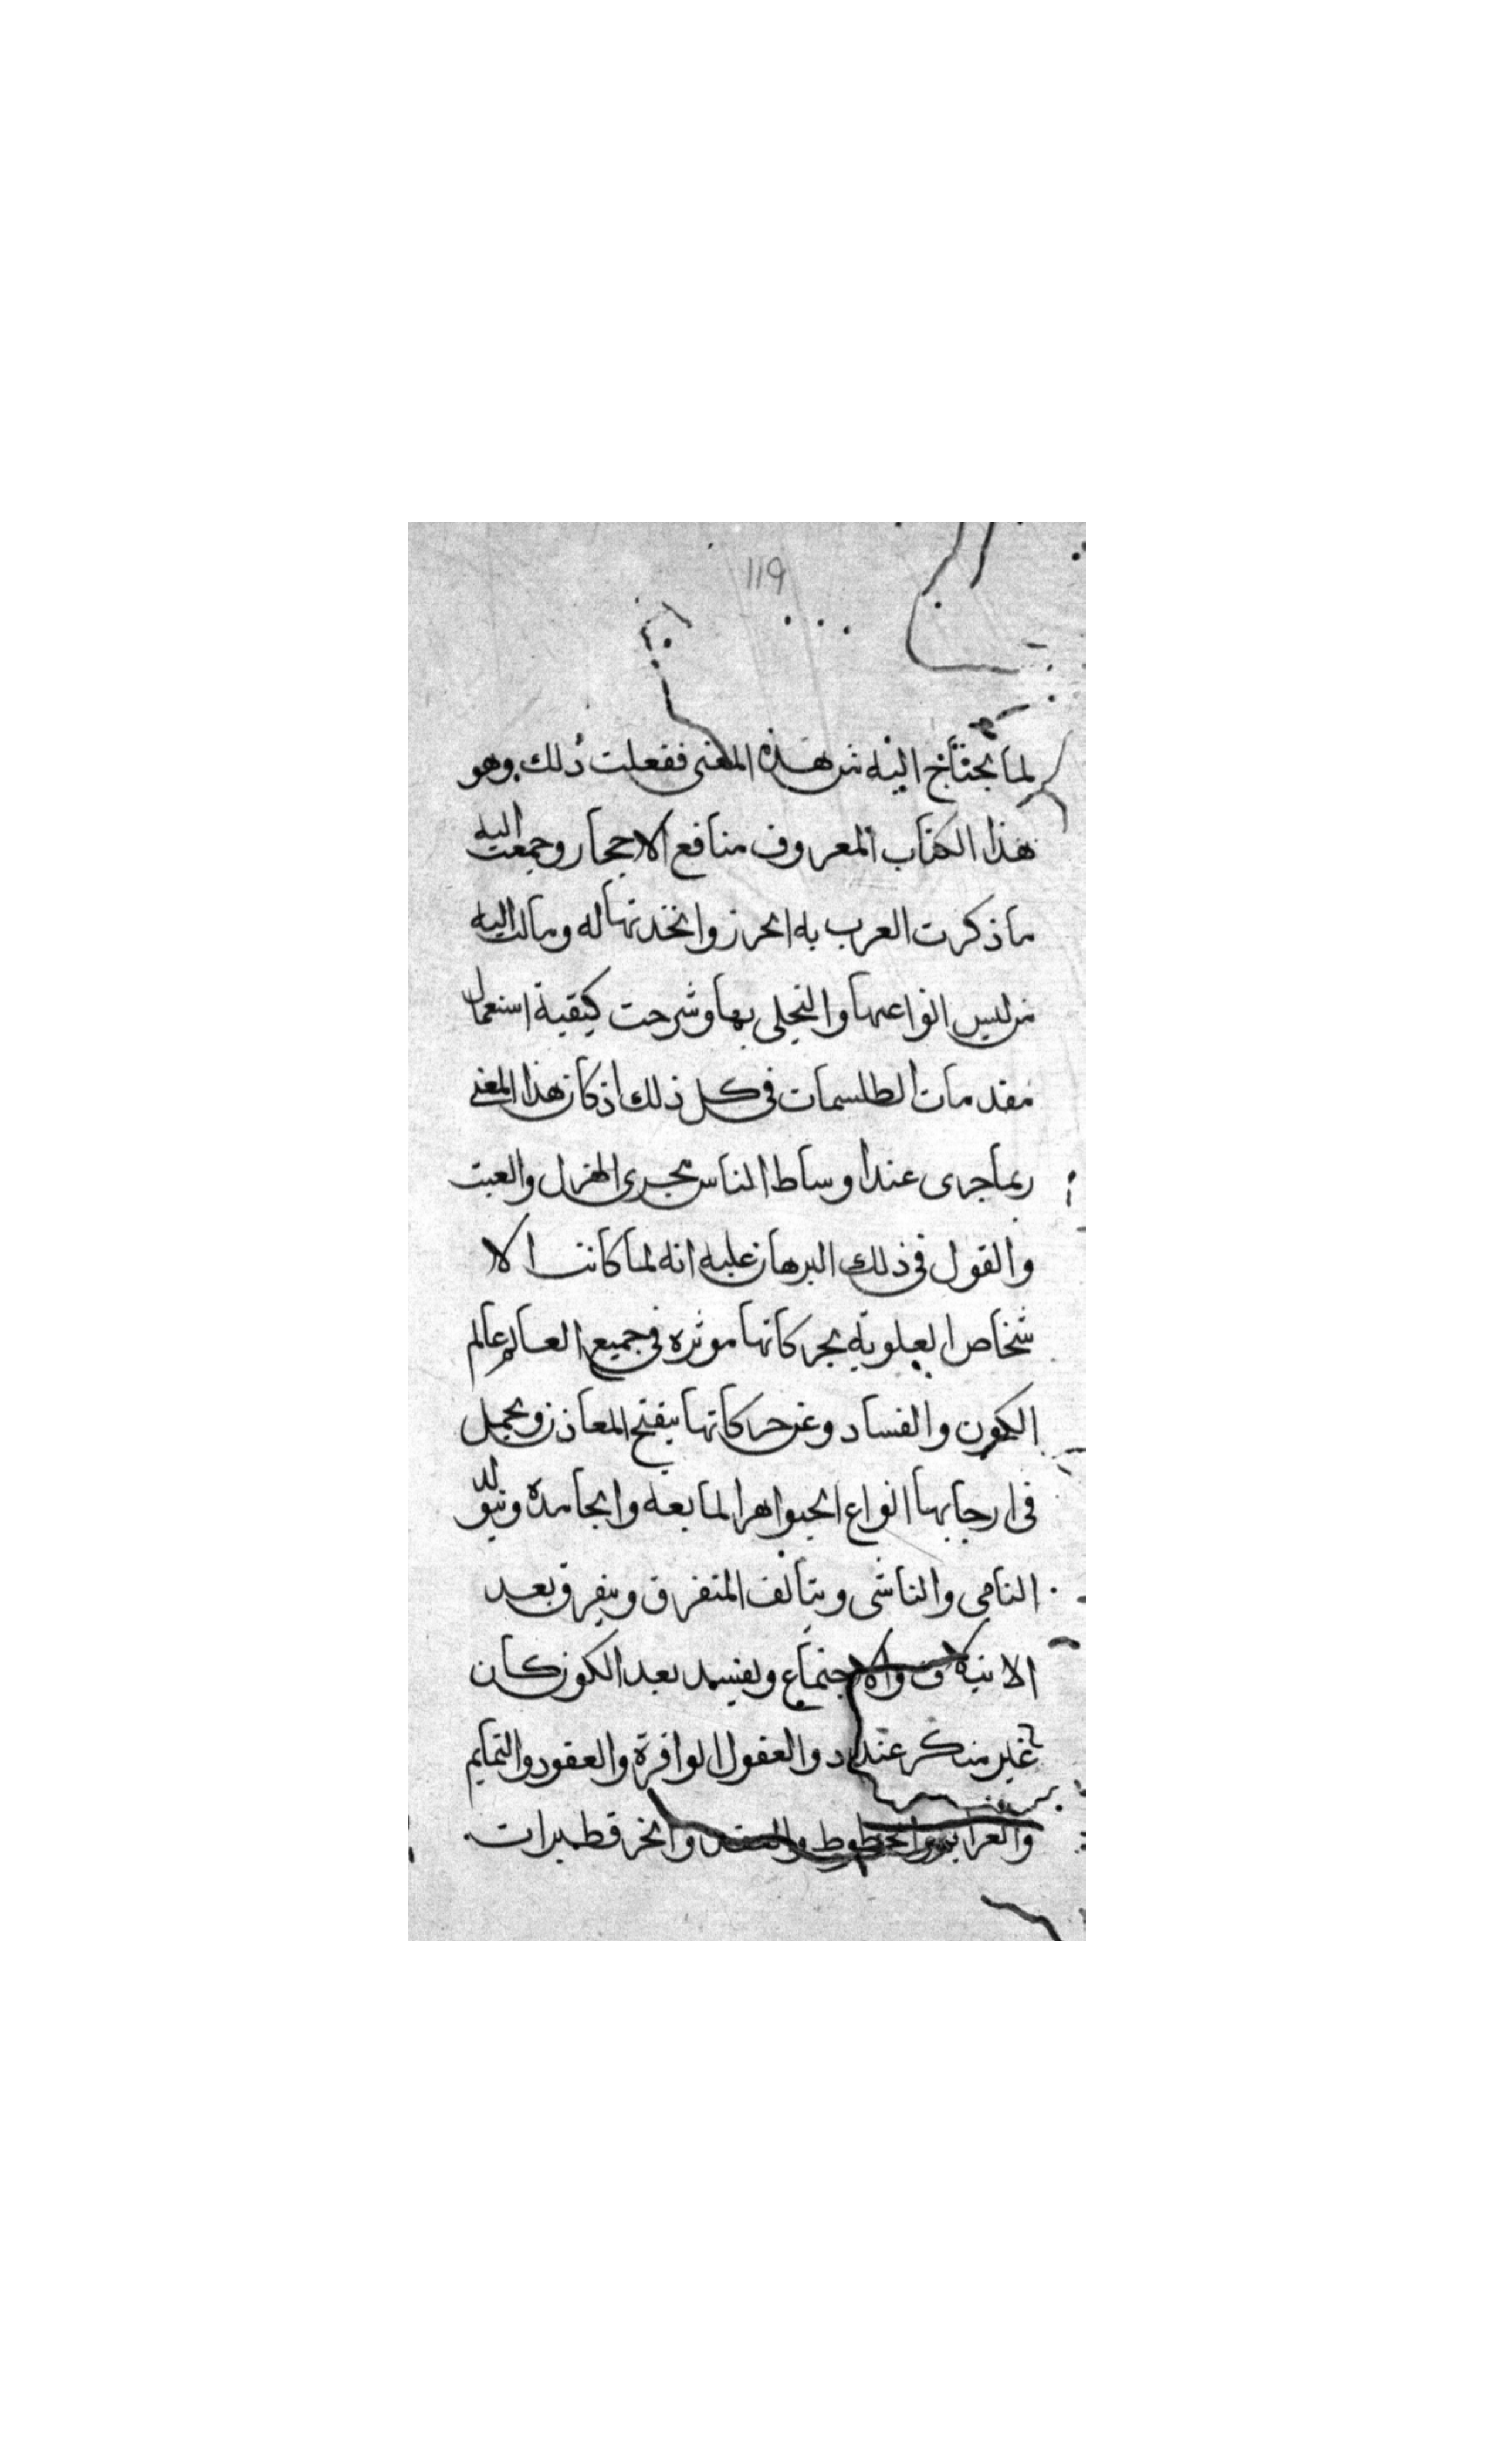 119
لما يحتاج اليه من هذه المعنى ففعلت ذلك وهو
هذا الكتاب المعروف منافع الاحجار وجمعت اليه
ما ذكرت العرب به الحرز واتخذتها له ومالت اليه
من لبس انواعها والتحلى بها وشرحت كيفية استعمال
مقدمات الطلسمات فى كل ذلك اذ كان هذا المعنى
ربما جرى عند اوساط الناس مجرى الهزل والعبث
والقول فى ذلك البرهان عليه انه لما كانت الا
شخاص العلوية بحركاتها موثره فى جميع العالم عالم
الكون والفساد وعن حركاتها ينفتح المعاذن ويحمل
فى ارجايها انواع الجواهر المايعه والجامدة ويتولد
النامى والناشى ويتالف المتفرق ويفرق بعد
الايتلاف والاجتماع ويفسد بعد الكون كان
غير منكر عند ذو العقول الوافرة والعقود والتمايم
والعزايم والخطوط والعقد والخرقطيرات